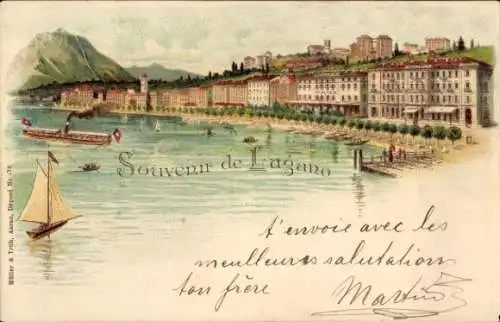 Souvenir de Lugano
t'envoie avec les
meilleures salutation
ton frère
Martin
Müller & Trüb, Aarau, Déposé Nr.